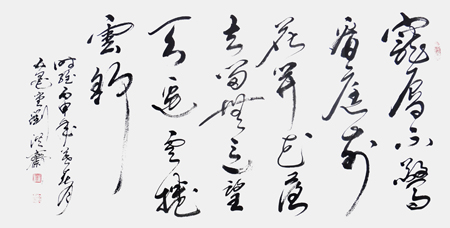 寵辱不驚
看庭前
花開花落
去留無意望
天邊雲捲
雲舒
時維丙申年春
堂劉